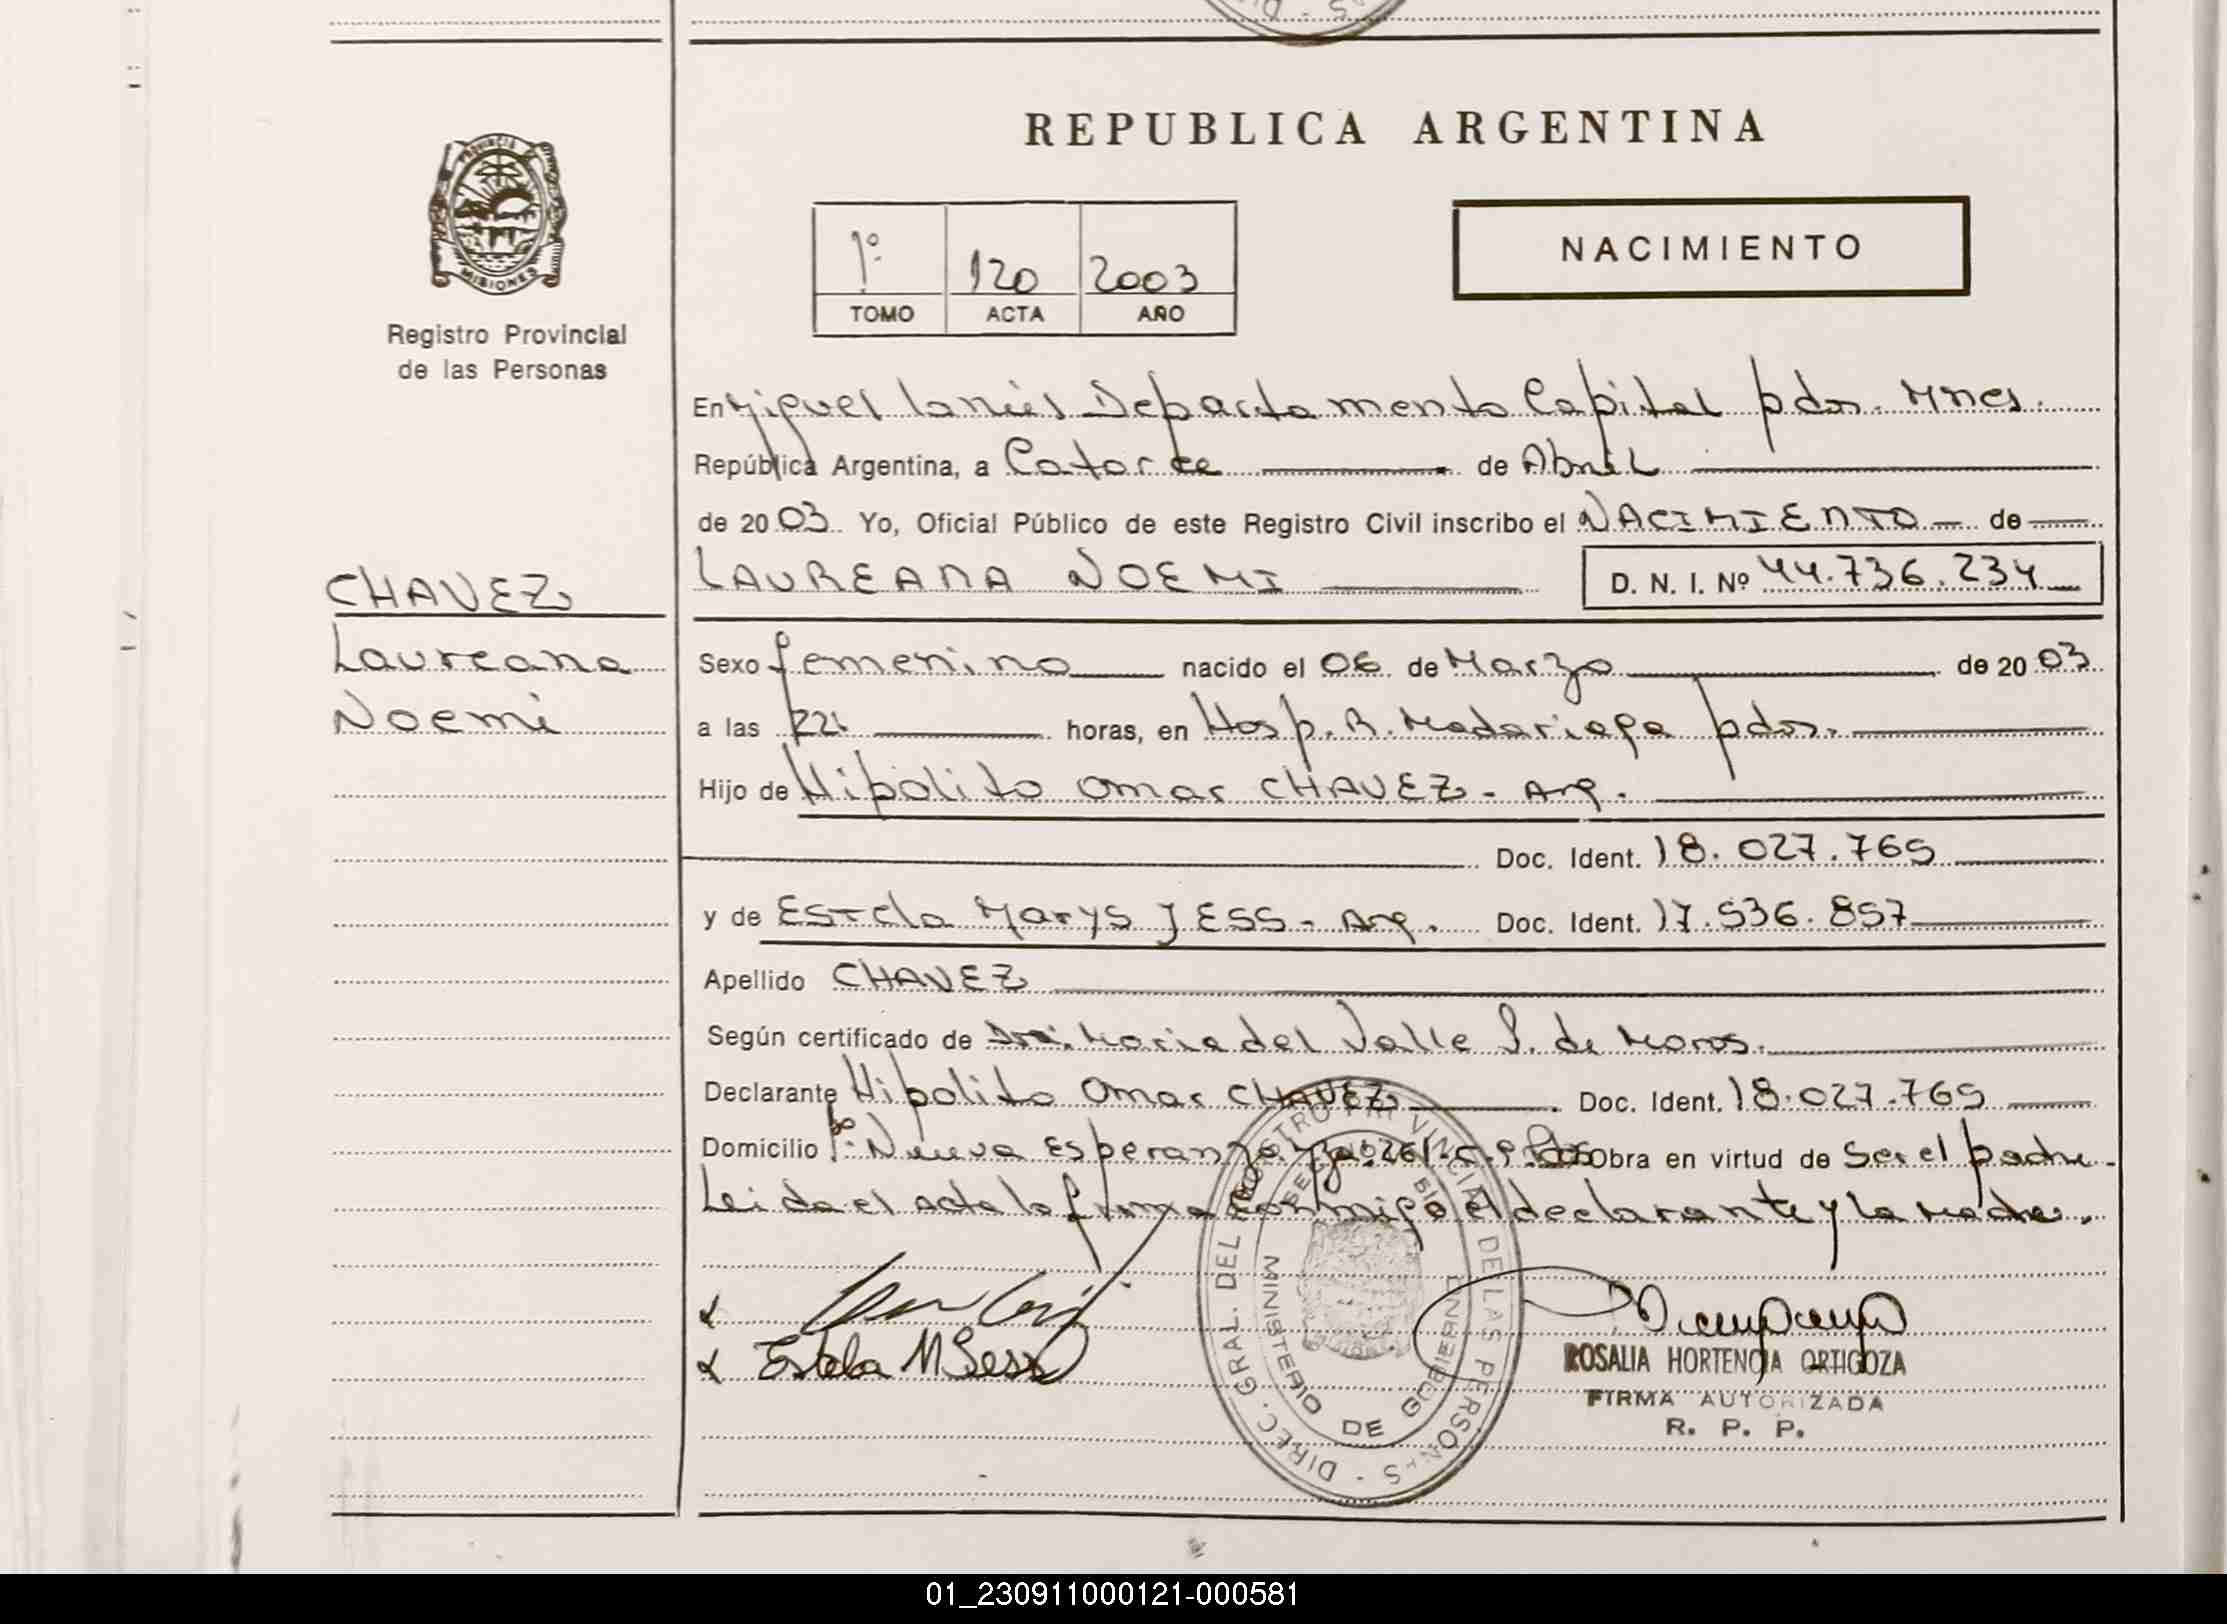 REPUBLICA ARGENTINA
PROVINCIA DE
MISIONES
Registro Provincial
de las Personas
1º 120 2003
TOMO ACTA AÑO
NACIMIENTO
En Miguel Lanús Departamento Capital pdas. Mnes.
República Argentina, a Catorce de Abril
de 2003. Yo, Oficial Público de este Registro Civil inscribo el NACIMIENTO de
CHAVEZ
LAUREANA NOEMI D. N. I. Nº 44.736.234
Laureana
Sexo femenino nacido el 06 de Marzo de 2003
Noemi
a las 22 horas, en Hosp. R. Madariaga pdas.
Hijo de Hipólito Omar CHAVEZ - Arg.
Doc. Ident. 18.027.765
y de Estela Marys JESS - Arg. Doc. Ident. 17.536.857
Apellido CHAVEZ
Según certificado de Dra. Maria del Valle S. de Moros.
Declarante Hipolito Omar CHAVEZ Doc. Ident. 18.027.765
Domicilio Bº. Nueva Esperanza Obra en virtud de ser el padre.
Leida el acta la firma conmigo el declarante y la madre.
Estela M Jess
DIREC. GRAL. DEL REGISTRO PROVINCIAL DE LAS PERSONAS
MINISTERIO DE GOBIERNO
ROSALIA HORTENCIA ORTIGOZA
FIRMA AUTORIZADA
R. P. P.
01_230911000121-000581